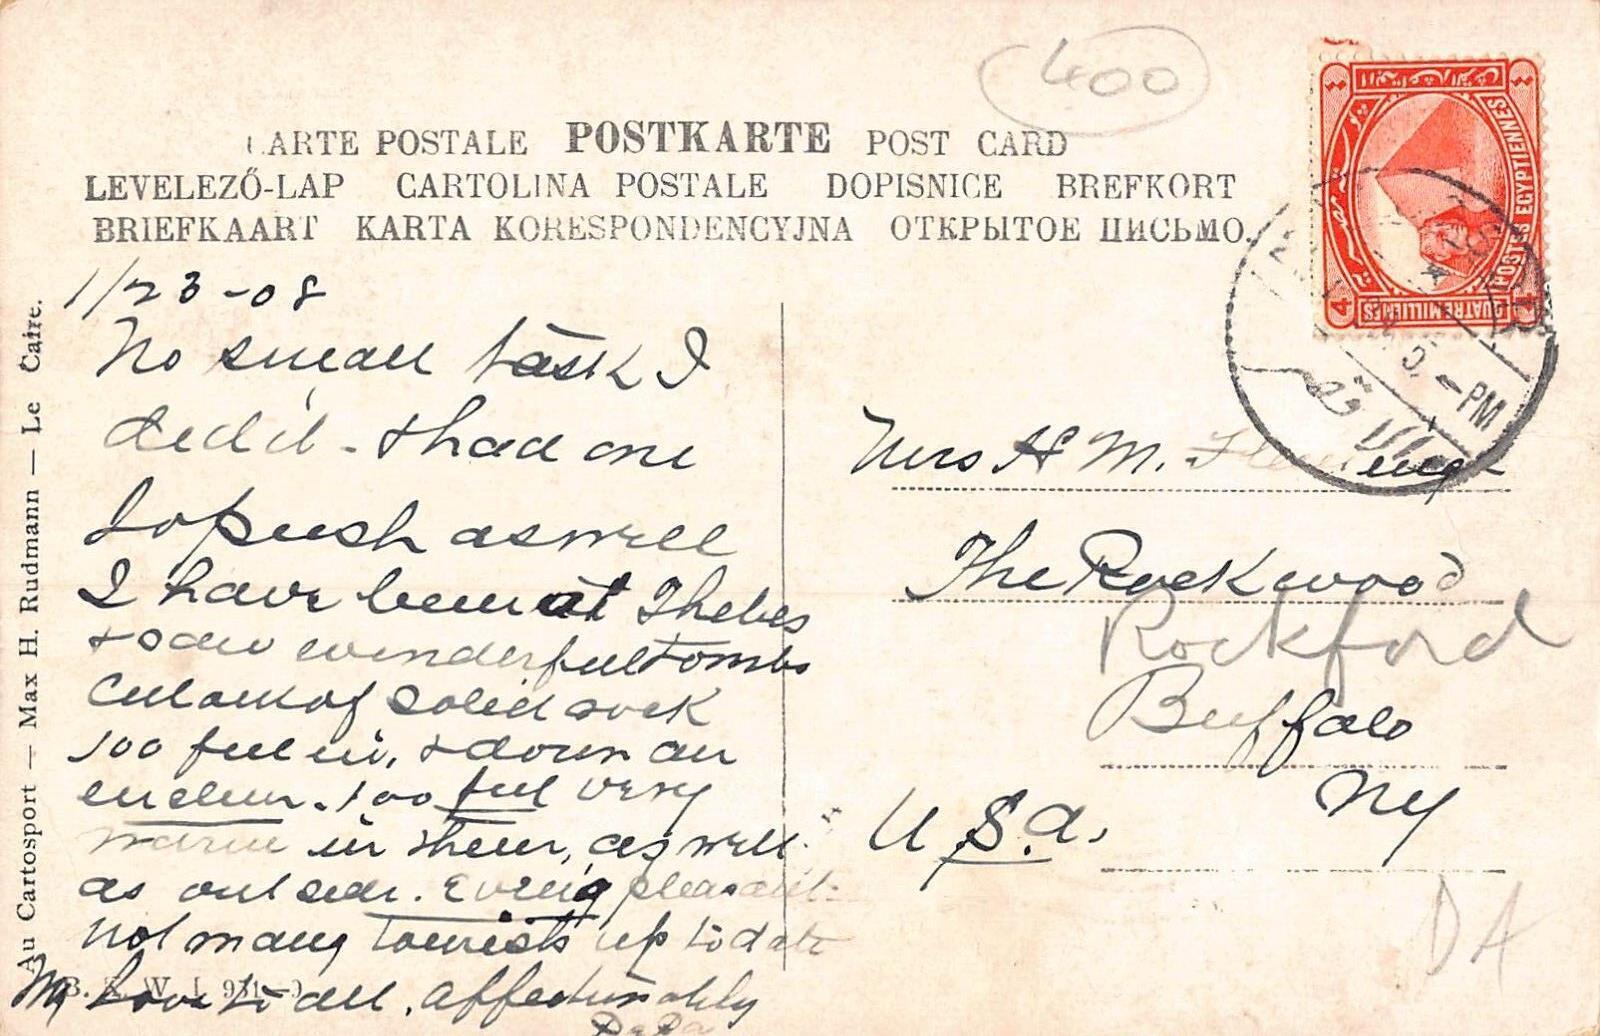 400
CARTE POSTALE POSTKARTE POST CARD
LEVELEZŐ-LAP CARTOLINA POSTALE DOPISNICE BREFKORT
BRIEFKAART KARTA KORESPONDENCYJNA ОТКРЫТОЕ ПИСЬМО.
POSTES EGYPTIENNES
QUATRE MILLIEMES
4 4
5 - PM
Au Cartosport — Max H. Rudmann — Le Caire.
1/23-08
No small task I
did it - & had one
to push as well
I have been at Thebes
& saw wonderful tombs
cut out of solid rock
100 feet in, & down an
incline. 100 feet very
warm in them, as well
as outside. Evening pleasant
not many tourists up to date
My Love to all. affectionately
Papa
Mrs H M. Fleming
The Rockwood
Rockford
Buffalo
NY
U.S.A.
DA